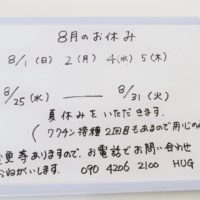 8月のお休み
8/1(日) 2(月) 4(水) 5(木)
8/25(水) ― 8/31(火)
夏休みをいただきます。
(ワクチン接種2回目もあるので用心のため
変更等ありますので、お電話でお問い合わせ
お願いします。 090 4206 2100 HUG